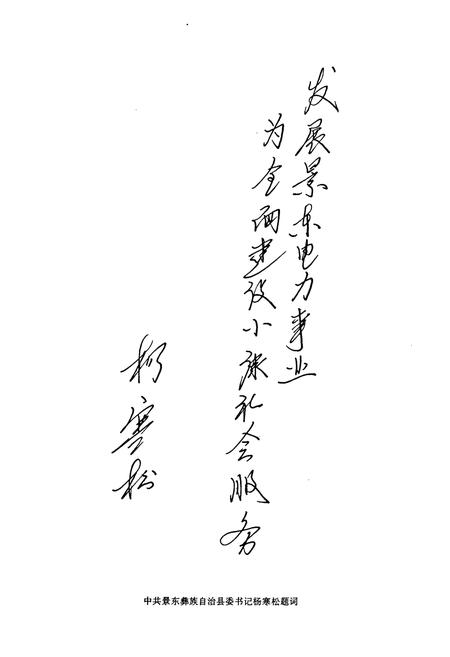 发展景东电力事业
为全面建设小康社会服务
杨寒松
中共景东彝族自治县委书记杨寒松题词